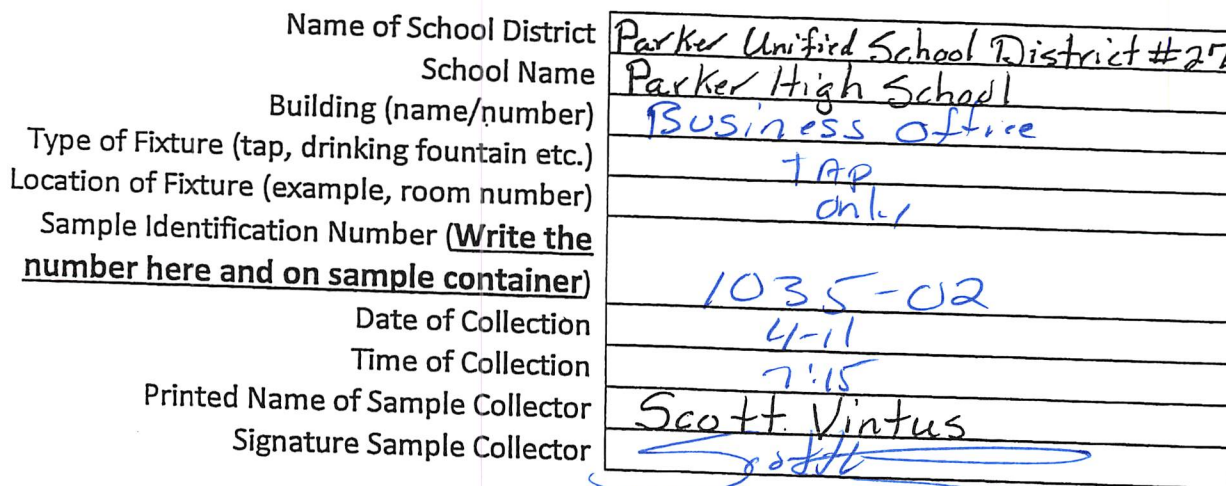 Name of School District Parker Unified School District #27
School Name Parker High School
Building (name/number) Business Office
Type of Fixture (tap, drinking fountain etc.) TAP
Location of Fixture (example, room number) only
Sample Identification Number (Write the
number here and on sample container) 1035-02
Date of Collection 4-11
Time of Collection 7:15
Printed Name of Sample Collector Scott Vintus
Signature Sample Collector Scott